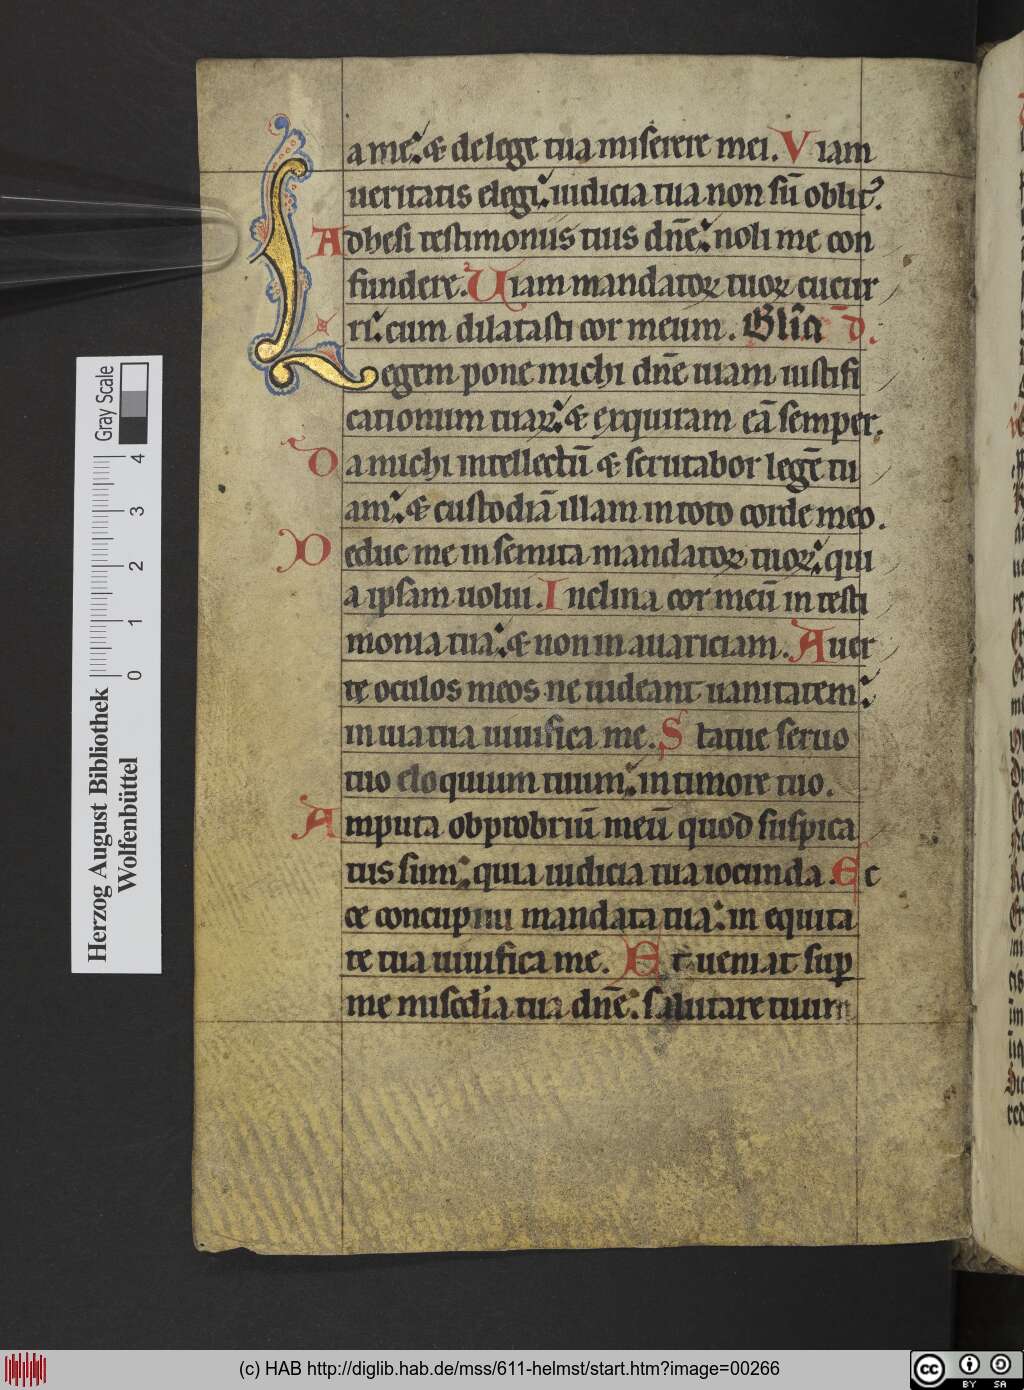 a me. & de lege tua miserere mei. Viam
ueritatis elegi. iudicia tua non sū oblit᾿.
Adhesi testimoniis tuis dn̄e. noli me con
fundere. Uiam mandatoꝝ tuoꝝ cucur
ri. cum dilatasti cor meum. Gl̄ia
Legem pone michi dn̄e uiam iustifi
cationum tuaꝝ. & exquiram eā semper.
Da michi intellectū & scrutabor legē tu
am. & custodiā illam in toto corde meo.
Deduc me in semita mandatoꝝ tuoꝝ. qui
a ipsam uolui. Inclina cor meū in testi
monia tua. & non in auariciam. Auer
te oculos meos ne uideant uanitatem.
in uia tua uiuifica me. Statue seruo
tuo eloquium tuum. in timore tuo.
Amputa obprobriū meū quod suspica
tus sum. quia iudicia tua iocunda. Ec
ce concupiui mandata tua. in equita
te tua uiuifica me. Et ueniat suꝑ
me misc̄dia tua dn̄e. salutare tuum
Herzog August Bibliothek
Wolfenbüttel
0 1 2 3 4
Gray Scale
(c) HAB http://diglib.hab.de/mss/611-helmst/start.htm?image=00266
cc BY SA